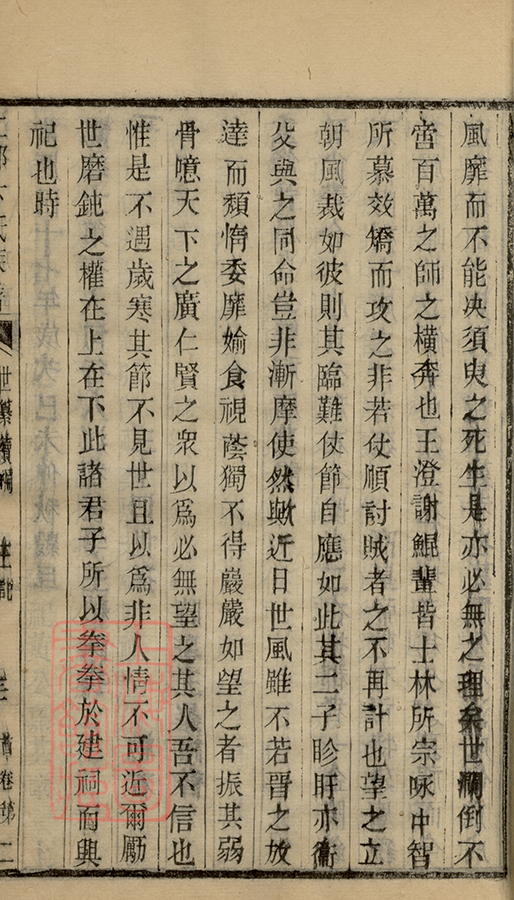 風靡而不能决須臾之死生是亦必無之理矣世瀾倒不
啻百萬之師之橫奔也王澄謝鯤輩皆士林所宗咏中智
所慕效矯而攻之非若仗順討賊者之不再計也望之立
朝風裁如彼則其臨難仗節自應如此其二子眕盱亦衞
父與之同命豈非漸摩使然歟近日世風雖不若晉之放
達而頹惰委靡婾食視蔭獨不得巖巖如望之者振其弱
骨噫天下之廣仁賢之衆以爲必無望之其人吾不信也
惟是不遇歲寒其節不見世且以爲非人情不可近爾勵
世磨鈍之權在上在下此諸君子所以拳拳於建祠而興
祀也時
世纂續編
三
首卷第二